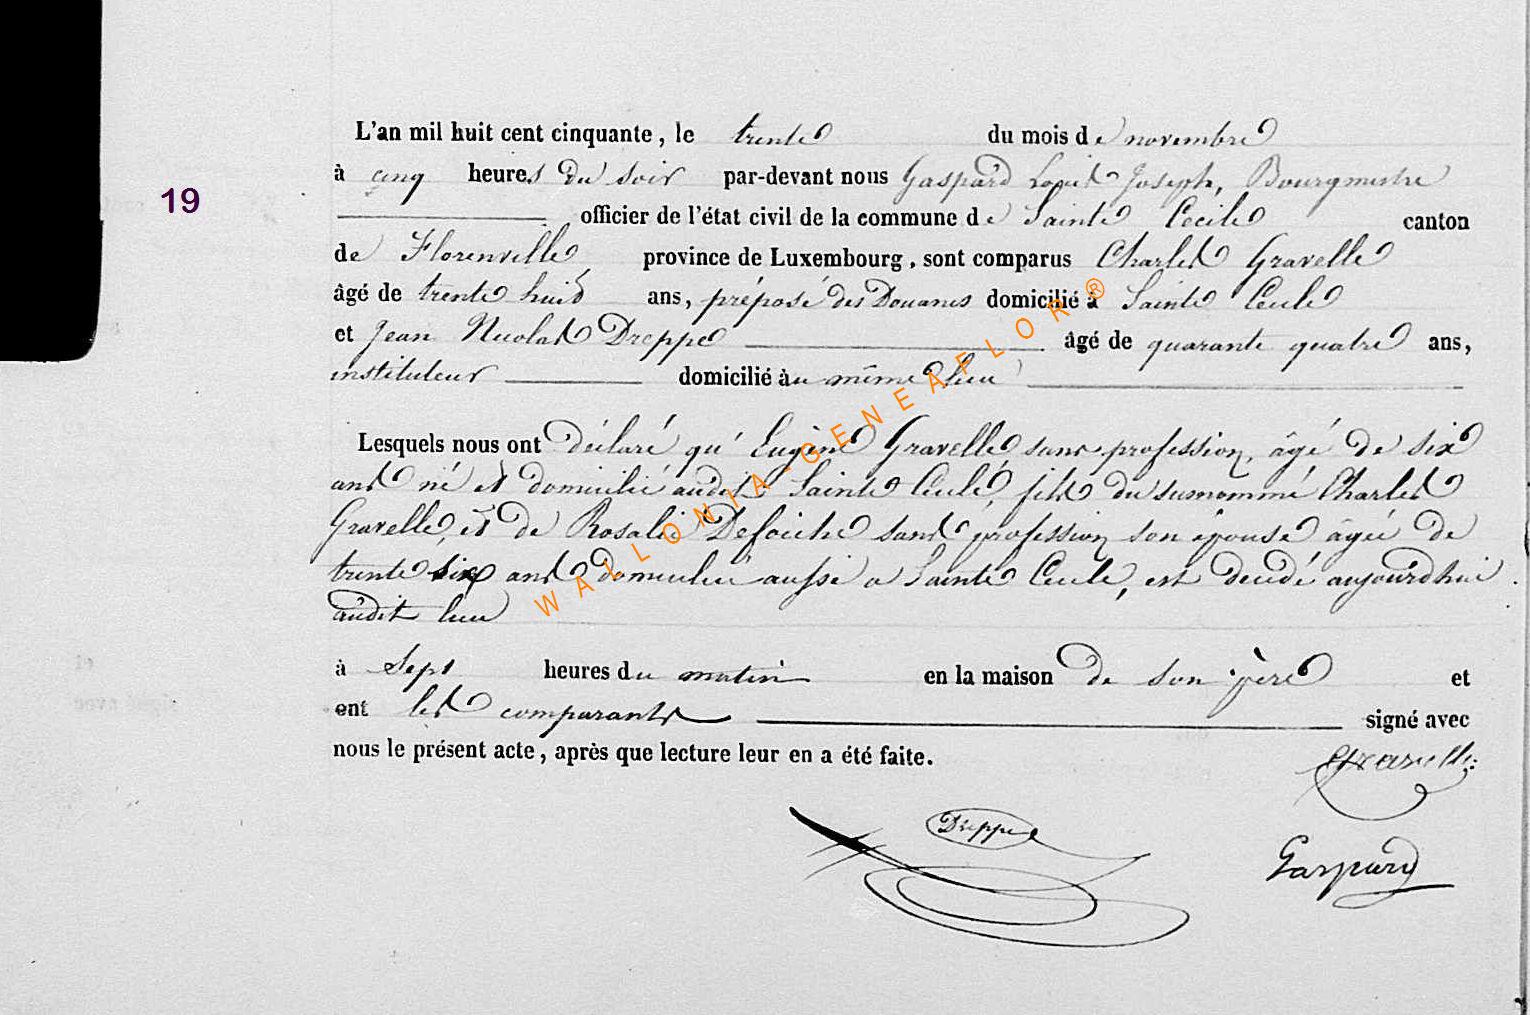 L'an mil huit cent cinquante, le trente du mois de novembre
à cinq heures du soir par-devant nous Gaspard Louis Joseph, Bourgmestre
19
officier de l'état civil de la commune de Sainte Cécile canton
de Florenville province de Luxembourg, sont comparus Charles Gravelle
âgé de trente huit ans, préposé des Douanes domicilié à Sainte Cecile
et Jean Nicolas Dreppe âgé de quarante quatre ans,
instituteur domicilié au même lieu
Lesquels nous ont déclaré qu'Eugène Gravelle sans profession, âgé de six
ans né et domicilié audit Sainte Cecile, fils du susnommé Charles
Gravelle, et de Rosalie sans profession son épouse âgée de
trente six ans domiciliée aussi a Sainte Cecile, est decédé aujourdhui
audit lieu
à sept heures du matin en la maison de son père et
ont les comparants signé avec
nous le présent acte, après que lecture leur en a été faite.
Gravelle
Dreppe
Gaspard
WALLONIA-GENEAFLOR®